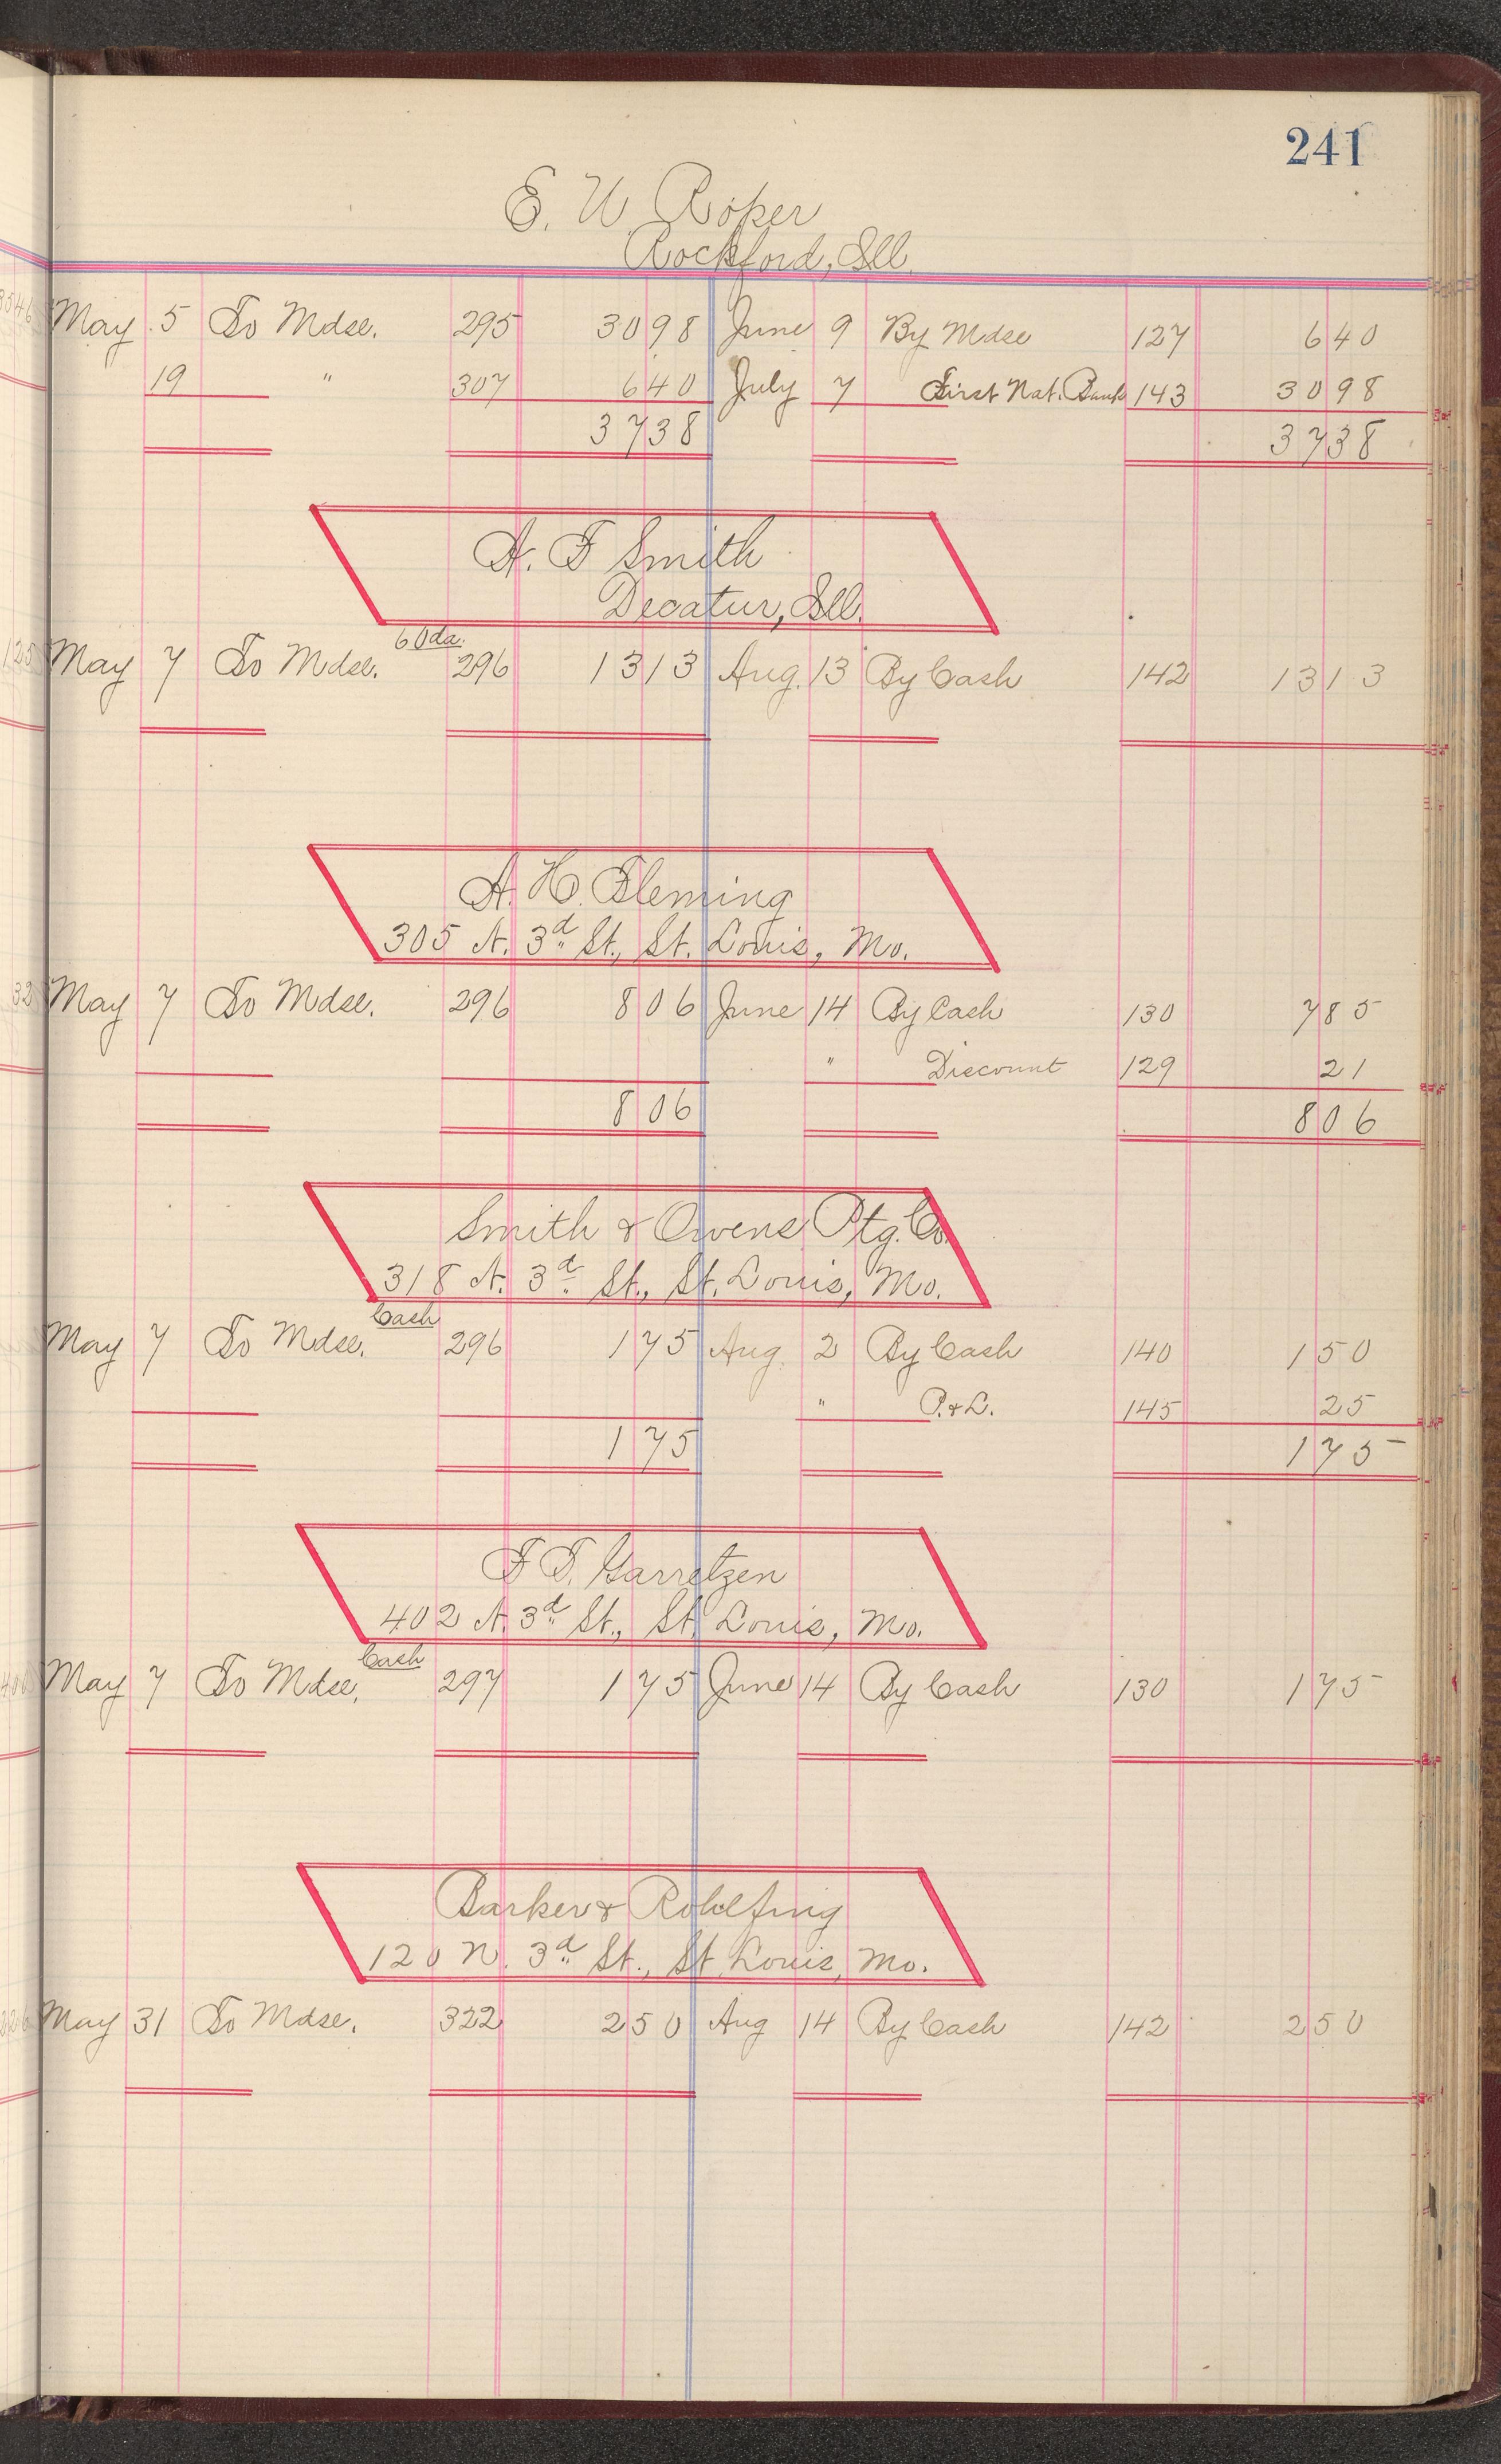 241
E. W. Roper
Rockford, Ill.
May 5 To Mdse. 295 30 98 June 9 By Mdse 127 6 40
19 " 307 6 40 July 7 First Nat. Bank 143 30 98
37 38 37 38
A. F Smith
Decatur, Ill.
60 da.
May 7 To Mdse. 296 13 13 Aug. 13 By Cash 142 13 13
A. H. Fleming
305 N. 3d St., St. Louis, Mo.
May 7 To Mdse. 296 8 06 June 14 By Cash 130 7 85
" Discount 129 21
8 06 8 06
Smith & Owens Ptg. Co.
318 N. 3d St., St. Louis, Mo.
Cash
May 7 To Mdse. 296 1 75 Aug. 2 By Cash 140 1 50
" P. & L. 145 25
1 75 1 75
F T. Garretzen
402 N. 3d St., St. Louis, Mo.
Cash
May 7 To Mdse. 297 1 75 June 14 By Cash 130 1 75
Barker & Rohlfing
120 N. 3d St., St Louis, Mo.
May 31 To Mdse. 322 2 50 Aug 14 By Cash 142 2 50